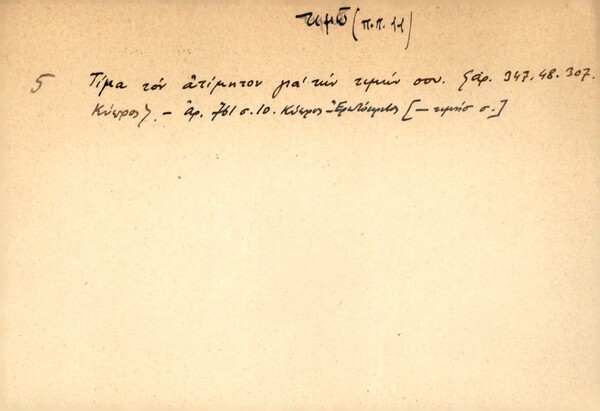 τιμῶ (Π.Π. 11)
5 Τίμα τόν ἀτίμητον γιά τήν τιμήν σου. {ἀρ. 347. 48. 307.
Κύπρος}. – ἀρ. 761 σ. 10. Κύπρος – [– τιμήσ σ.]